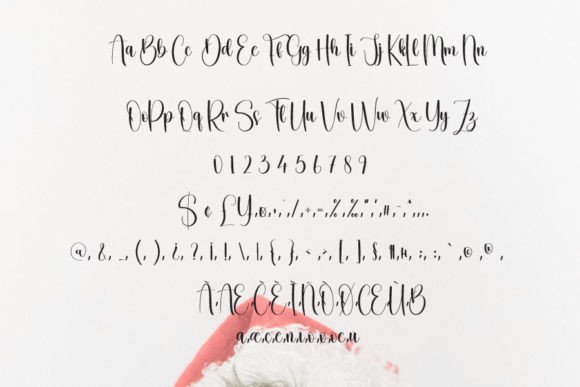 Aa Bb Cc Dd Ee Ff Gg Hh Ii Jj Kk Ll Mm Nn
Oo Pp Qq Rr Ss Tt Uu Vv Ww Xx Yy Zz
0 1 2 3 4 5 6 7 8 9
$ ¢ £ Y,¤,·,¡,/,÷,=,%,‰,",',#,-,^,,,.
@, &, _, (, ), ¿, ?, ¡, !, \, |, {, }, <, >, [, ], §, ¶, µ, :, ;, `, ©, ®,
À,Æ,Ç,È,Ì,Ñ,Ò,Ø,Œ,Ù,ß
a,æ,ç,è,n,ì,o,ø,œ,u